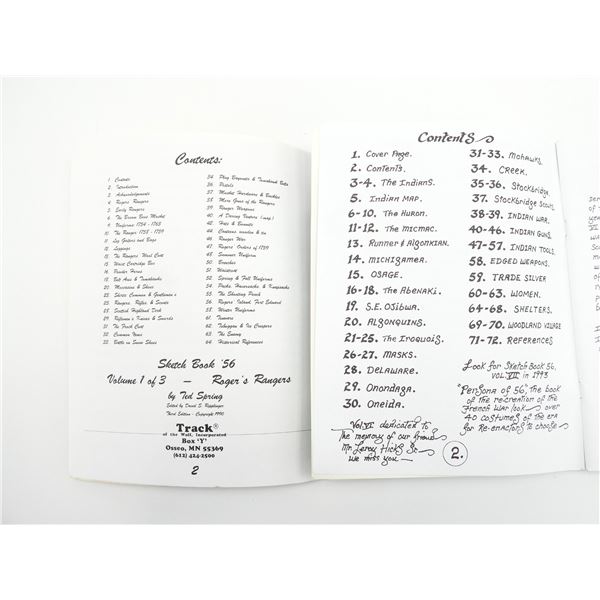 Contents:
1 Contents
2 Introduction
3 Acknowledgements
4 Rogers Rangers
5 Early Rangers
6 The Brown Bess Musket
9 Uniforms 1754 - 1763
10 The Ranger 1755 - 1759
11 Leg Gaiters and Bags
12 Leggings
13 The Rangers Waist Coat
15 Waist Cartridge Box
16 Powder Horns
18 Belt Axes & Tomahawks
20 Moccasins & Shoes
25 Rangers, Rifles & Scouts
28 Scottish Highland Dork
31 The Frock Coat
32 Common Vests
34 Plug Bayonets & Tomahawk Belts
36 Pistols
37 Musket Hardware & Buckles
38 More Guns of the Rangers
39 Ranger Weapons
40 A Daring Venture (map)
42 Hats & Bonnets
46 Ranger War
47 Rogers Orders of 1759
48 Summer Uniform
50 Breeches
51 Waistcoat
52 Spring & Fall Uniforms
54 Packs, Haversacks & Knapsacks
55 The Shooting Pouch
56 Rogers Island, Fort Edward
58 Winter Uniforms
62 Toboggan & Ice Creepers
62 Common Men
63 The Enemy
64 Historical References
Sketch Book '56
Volume 1 of 3 — Roger's Rangers
by Ted Spring
Edited by David S. Ripplinger
Third Edition - Copyright 1990
Track®
of the Wolf, Incorporated
Box 'Y'
Osseo, MN 55369
(612) 424-2500
2
Contents
1. Cover Page.
2. Contents.
3-4. The Indians.
5. Indian Map.
6-10. The Huron.
11-12. The Micmac.
13. Runner & Algonkian.
14. Michigamea.
15. Osage.
16-18. The Abenaki.
19. S.E. Ojibwa.
20. Algonquins.
21-25. The Iroquois.
26-27. Masks.
28. Delaware.
29. Onondaga.
30. Oneida.
31-33. Mohawks.
34. Creek.
35-36. Stockbridge.
37. Stockbridge Scouts.
38-39. Indian War.
40-46. Indian Guns.
47-57. Indian Tools.
58. Edged Weapons.
59. Trade Silver
60-63. Women.
64-68. Shelters.
69-70. Woodland Village
71-72. References
Look for Sketch Book 56,
Vol. VII in 1993
"Persona of 56", the book
of the re-creation of the
French War look — over
40 costumes of the era
for Re-enactors to choose
Vol. VI dedicated to
the memory of our friend
Mr. Leroy Hicks Sr.
We miss you —
2.